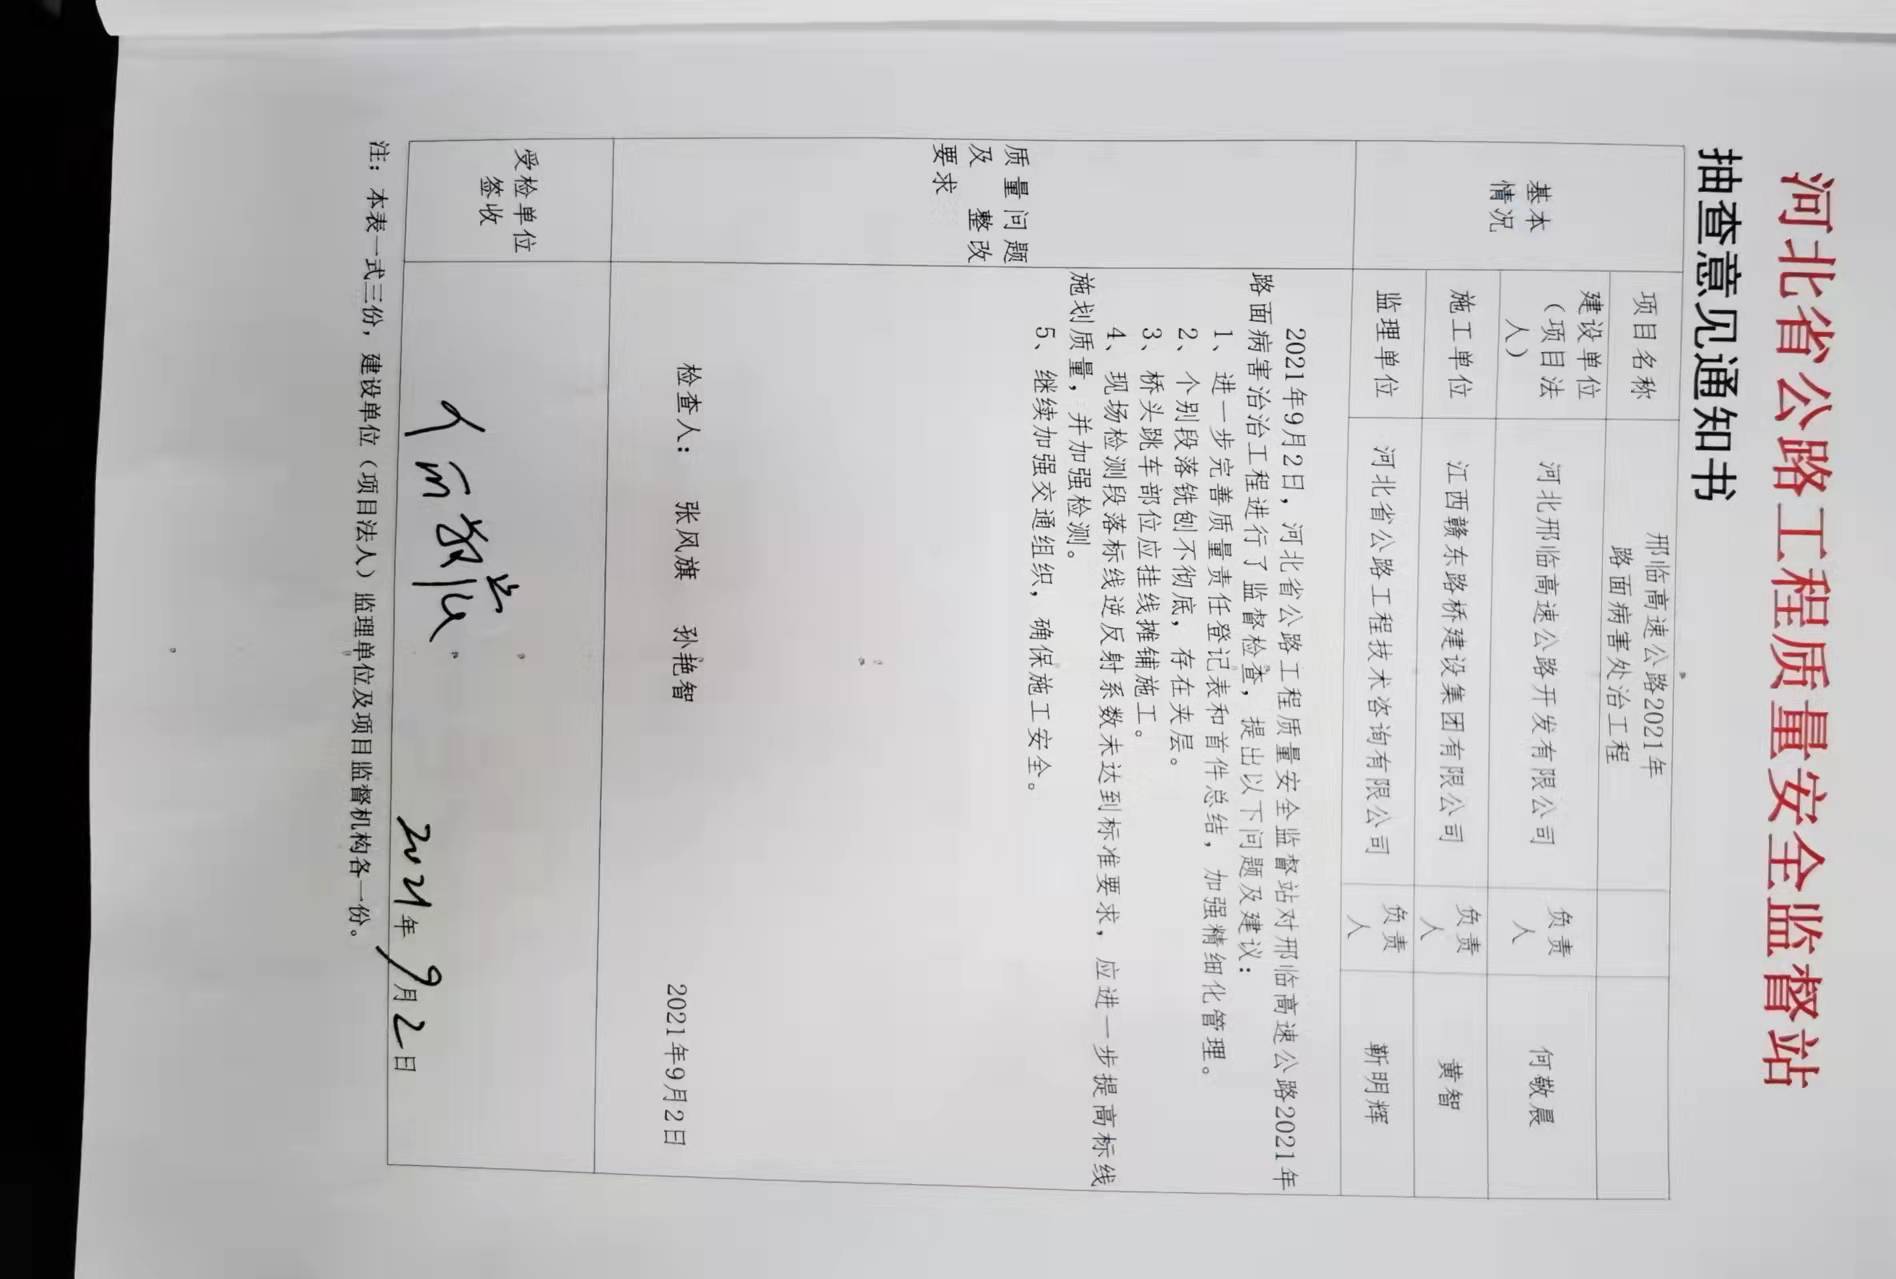 河北省公路工程质量安全监督站
抽查意见通知书
基本
情况
项目名称
邢临高速公路2021年
路面病害处治工程
建设单位
（项目法
人）
河北邢临高速公路开发有限公司
负责
人
何敬晨
施工单位
江西赣东路桥建设集团有限公司
负责
人
黄智
监理单位
河北省公路工程技术咨询有限公司
负责
人
靳明辉
质量问题
及 整改
要求
2021年9月2日，河北省公路工程质量安全监督站对邢临高速公路2021年
路面病害治治工程进行了监督检查，提出以下问题及建议：
1、进一步完善质量责任登记表和首件总结，加强精细化管理。
2、个别段落铣刨不彻底，存在夹层。
3、桥头跳车部位应挂线摊铺施工。
4、现场检测段落标线逆反射系数未达到标准要求，应进一步提高标线
施划质量，并加强检测。
5、继续加强交通组织，确保施工安全。
检查人： 张风旗 孙艳智
2021年9月2日
受检单位
签收
2021年9月2日
注：本表一式三份，建设单位（项目法人）监理单位及项目监督机构各一份。